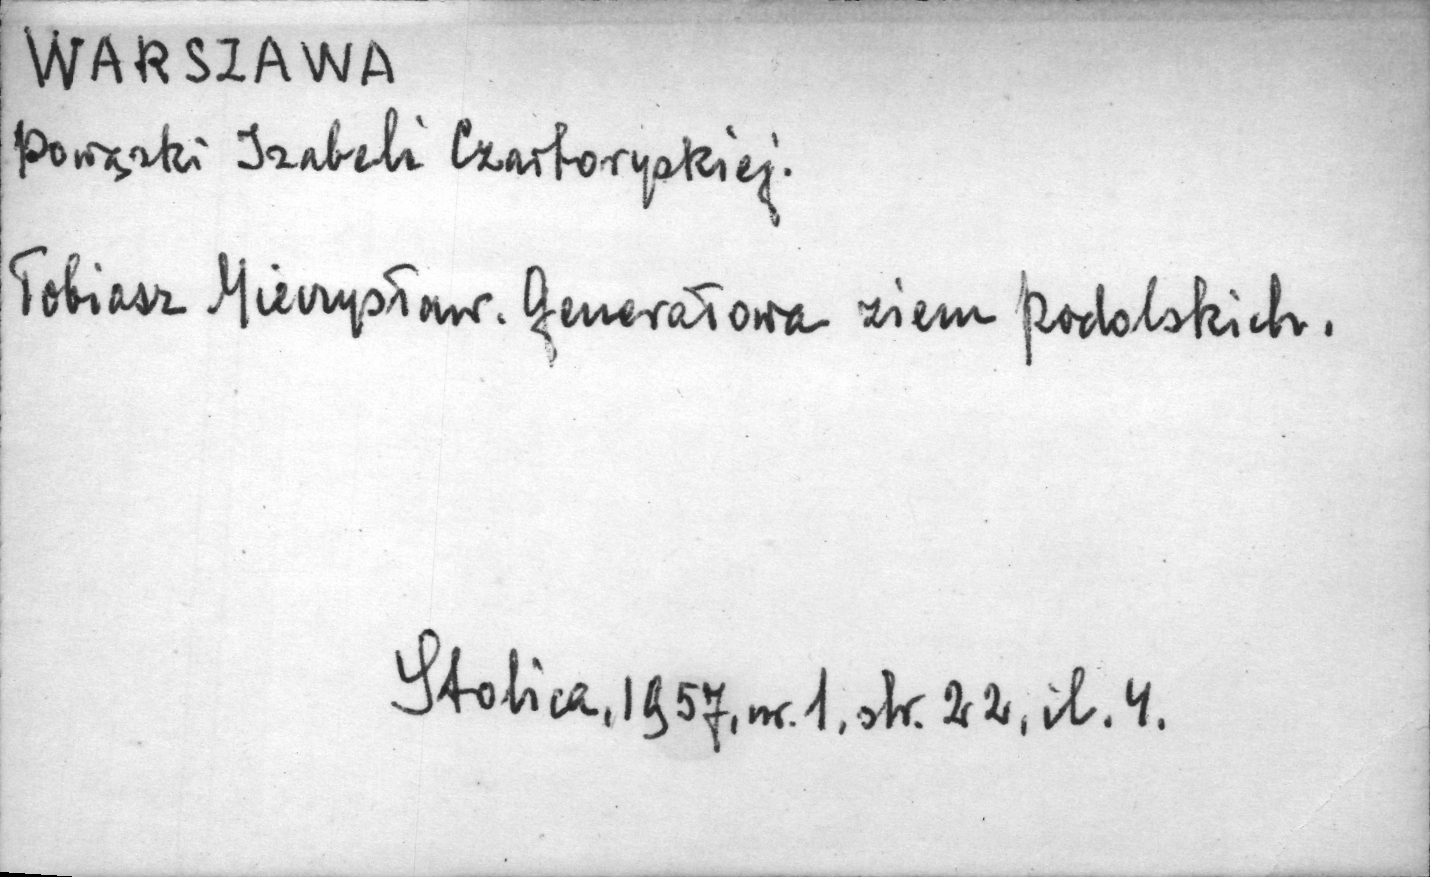 WARSZAWA
Powązki Izabeli Czartoryskiej.
Tobiasz Mieczysław. Generałowa ziem podolskich.
Stolica, 1957, nr. 1, str. 22, il. 4.